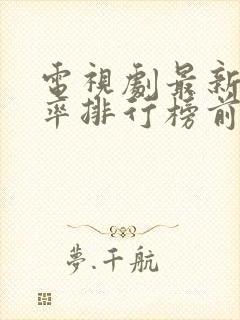 電視劇最新
率排行榜前
夢.千航